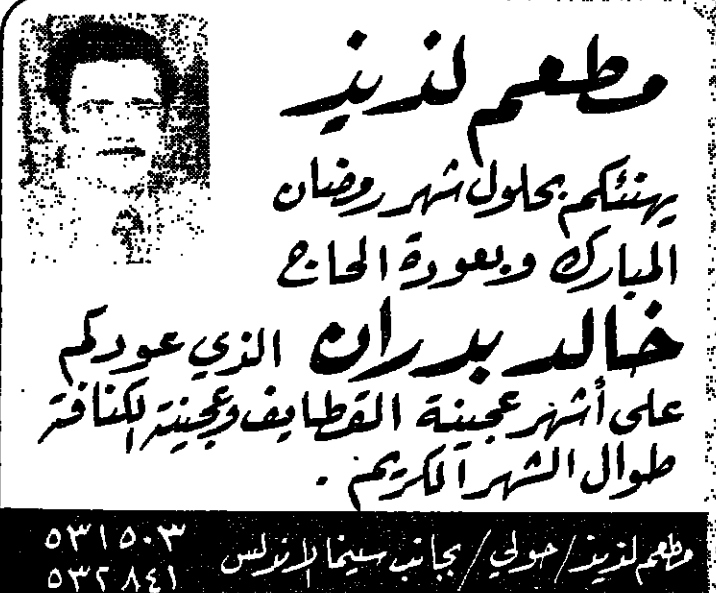 مطعم لذيذ
يهنئكم بحلول شهر رمضان
المبارك وبعودة الحاج
خالد بدران الذي عودكم
على أشهر عجينة القطايف وعجينة الكنافة
طوال الشهر الكريم .
مطعم لذيذ / حولي / بجانب سينما الاندلس
٥٣١٥٠٣
٥٣٢٨٤١